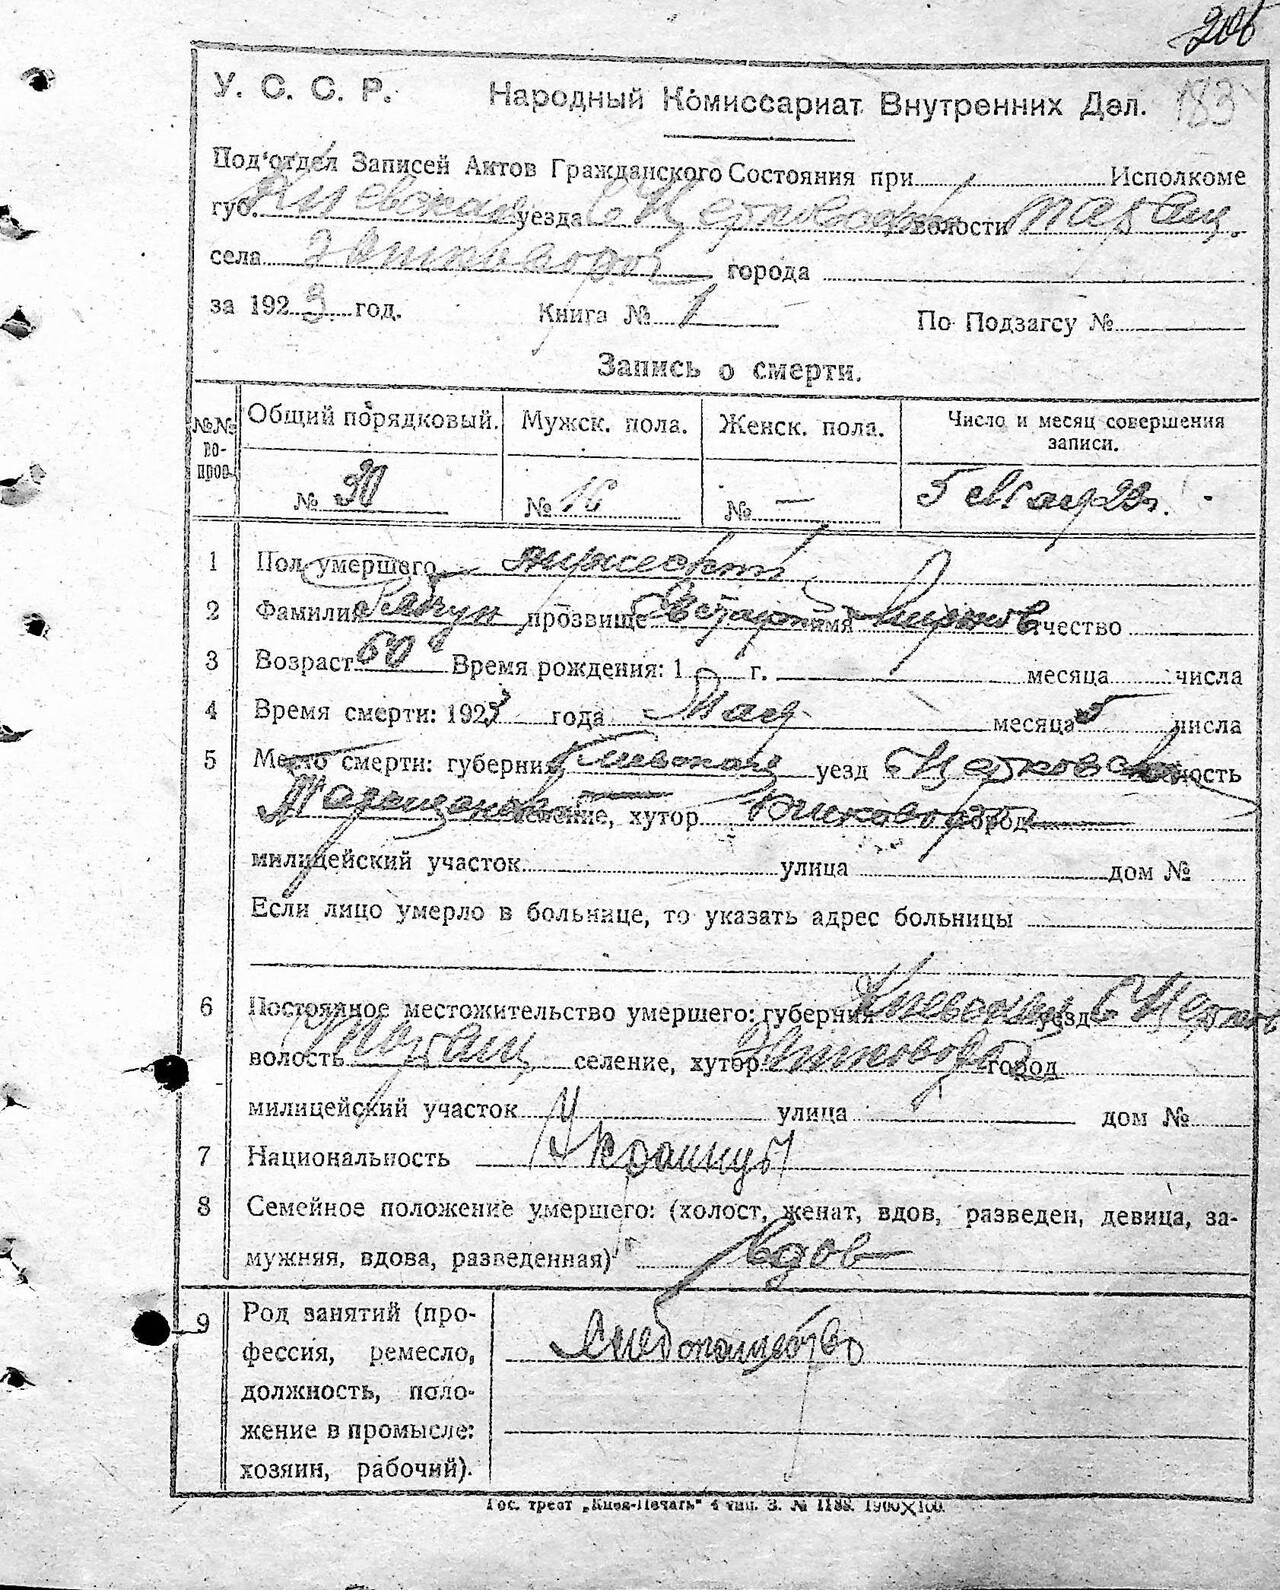 206
У. С. С. Р. Народный Комиссариат Внутренних Дел. 183
Под'отдел Записей Актов Гражданского Состояния при Исполкоме
губ. Киевская уезда Б Церковский волости Таращ.
села города
за 1923 год. Книга № 1 По Подзагсу №
Запись о смерти.
№№ вопров. Общий порядковый. Мужск. пола. Женск. пола. Число и месяц совершения записи.
№ 30 № 16 № — 5 Мая 23 г.
1 Пол умершего мужской
2 Фамилия прозвище имя отчество
3 Возраст 60 Время рождения: 1 г. месяца числа
4 Время смерти: 1923 года Мая месяца 5 числа
5 Место смерти: губерния Киевская уезд Б Церковский волость
селение, хутор город
милицейский участок улица дом №
Если лицо умерло в больнице, то указать адрес больницы
6 Постоянное местожительство умершего: губерния Киевская уезд Б Церков
волость Таращ селение, хутор город
милицейский участок улица дом №
7 Национальность Украинцы
8 Семейное положение умершего: (холост, женат, вдов, разведен, девица, за-
мужняя, вдова, разведенная) вдов
9 Род занятий (про-
фессия, ремесло, Хлебопашество
должность, поло-
жение в промысле:
хозяин, рабочий).
Гос. трест „Киев-Печать" 4 тип. З. № 1188. 1900X100.